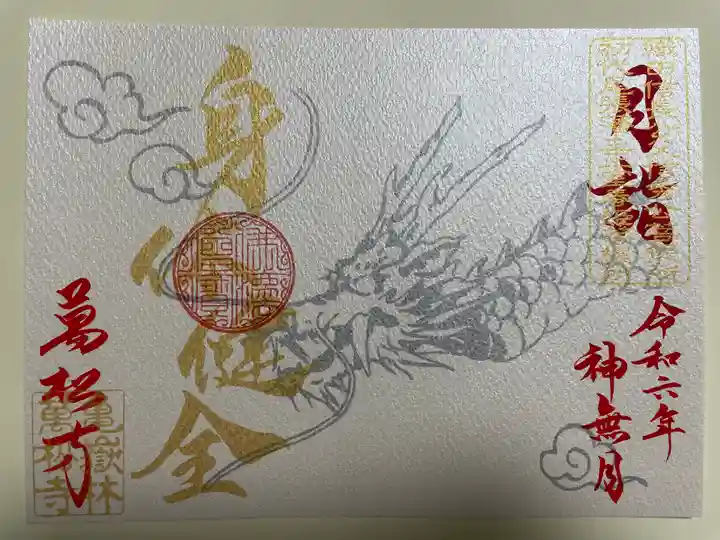 月詣
令和六年
神無月
身体健全
萬松寺
亀嶽林
萬松寺